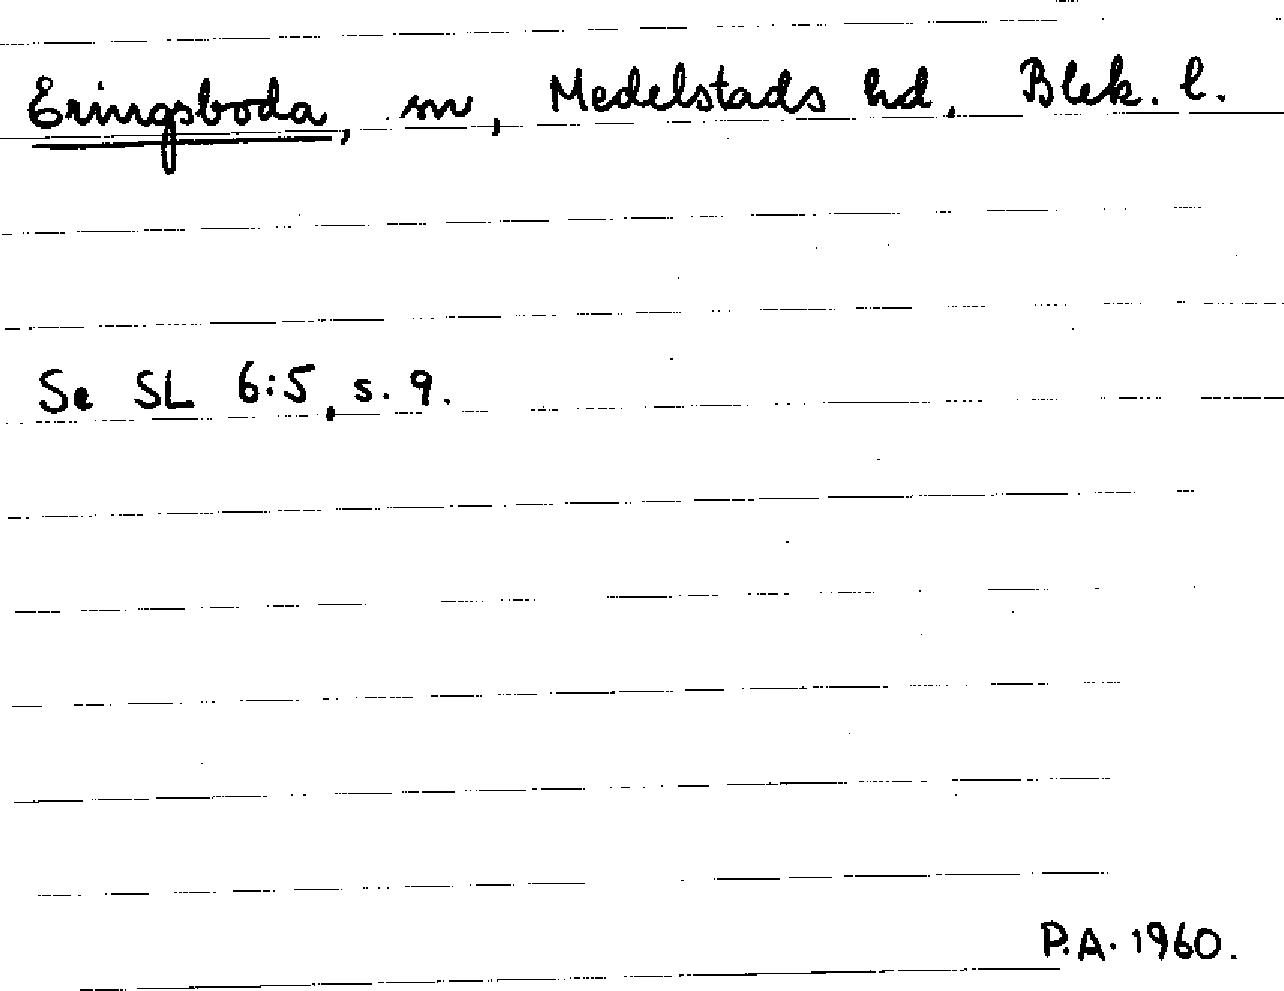 Eringsboda, sn, Medelstads hd, Blek. l.
Se SL 6:5, s. 9.
P.A. 1960.